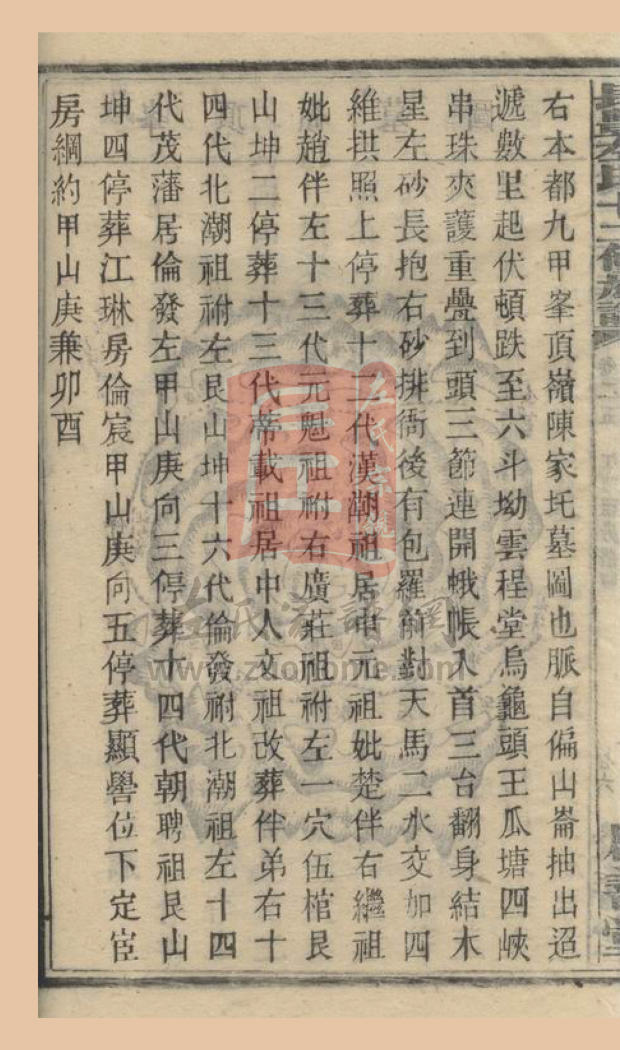 右本都九甲峯頂嶺陳家圫墓圖也脈自偏山崙抽出迢
遞數里起伏頓跌至六斗坳雲程堂烏龜頭王瓜塘四峽
串珠夾護重疊到頭三節連開蛾帳入首三台翻身結木
星左砂長抱右砂排衙後有包羅前對天馬二水交加四
維拱照上停葬十二代漢潮祖居中元祖妣楚伴右繼祖
妣趙伴左十三代元魁祖祔右廣莊祖祔左一穴伍棺艮
山坤二停葬十三代蒂載祖居中人文祖改葬伴弟右十
四代北潮祖祔左艮山坤十六代倫發祔北潮祖左十四
代茂藩居倫發左甲山庚向三停葬十四代朝聘祖艮山
坤四停葬江琳房倫宸甲山庚向五停葬顯譽位下定宦
房綱約甲山庚兼卯酉
www.zuojiome.com